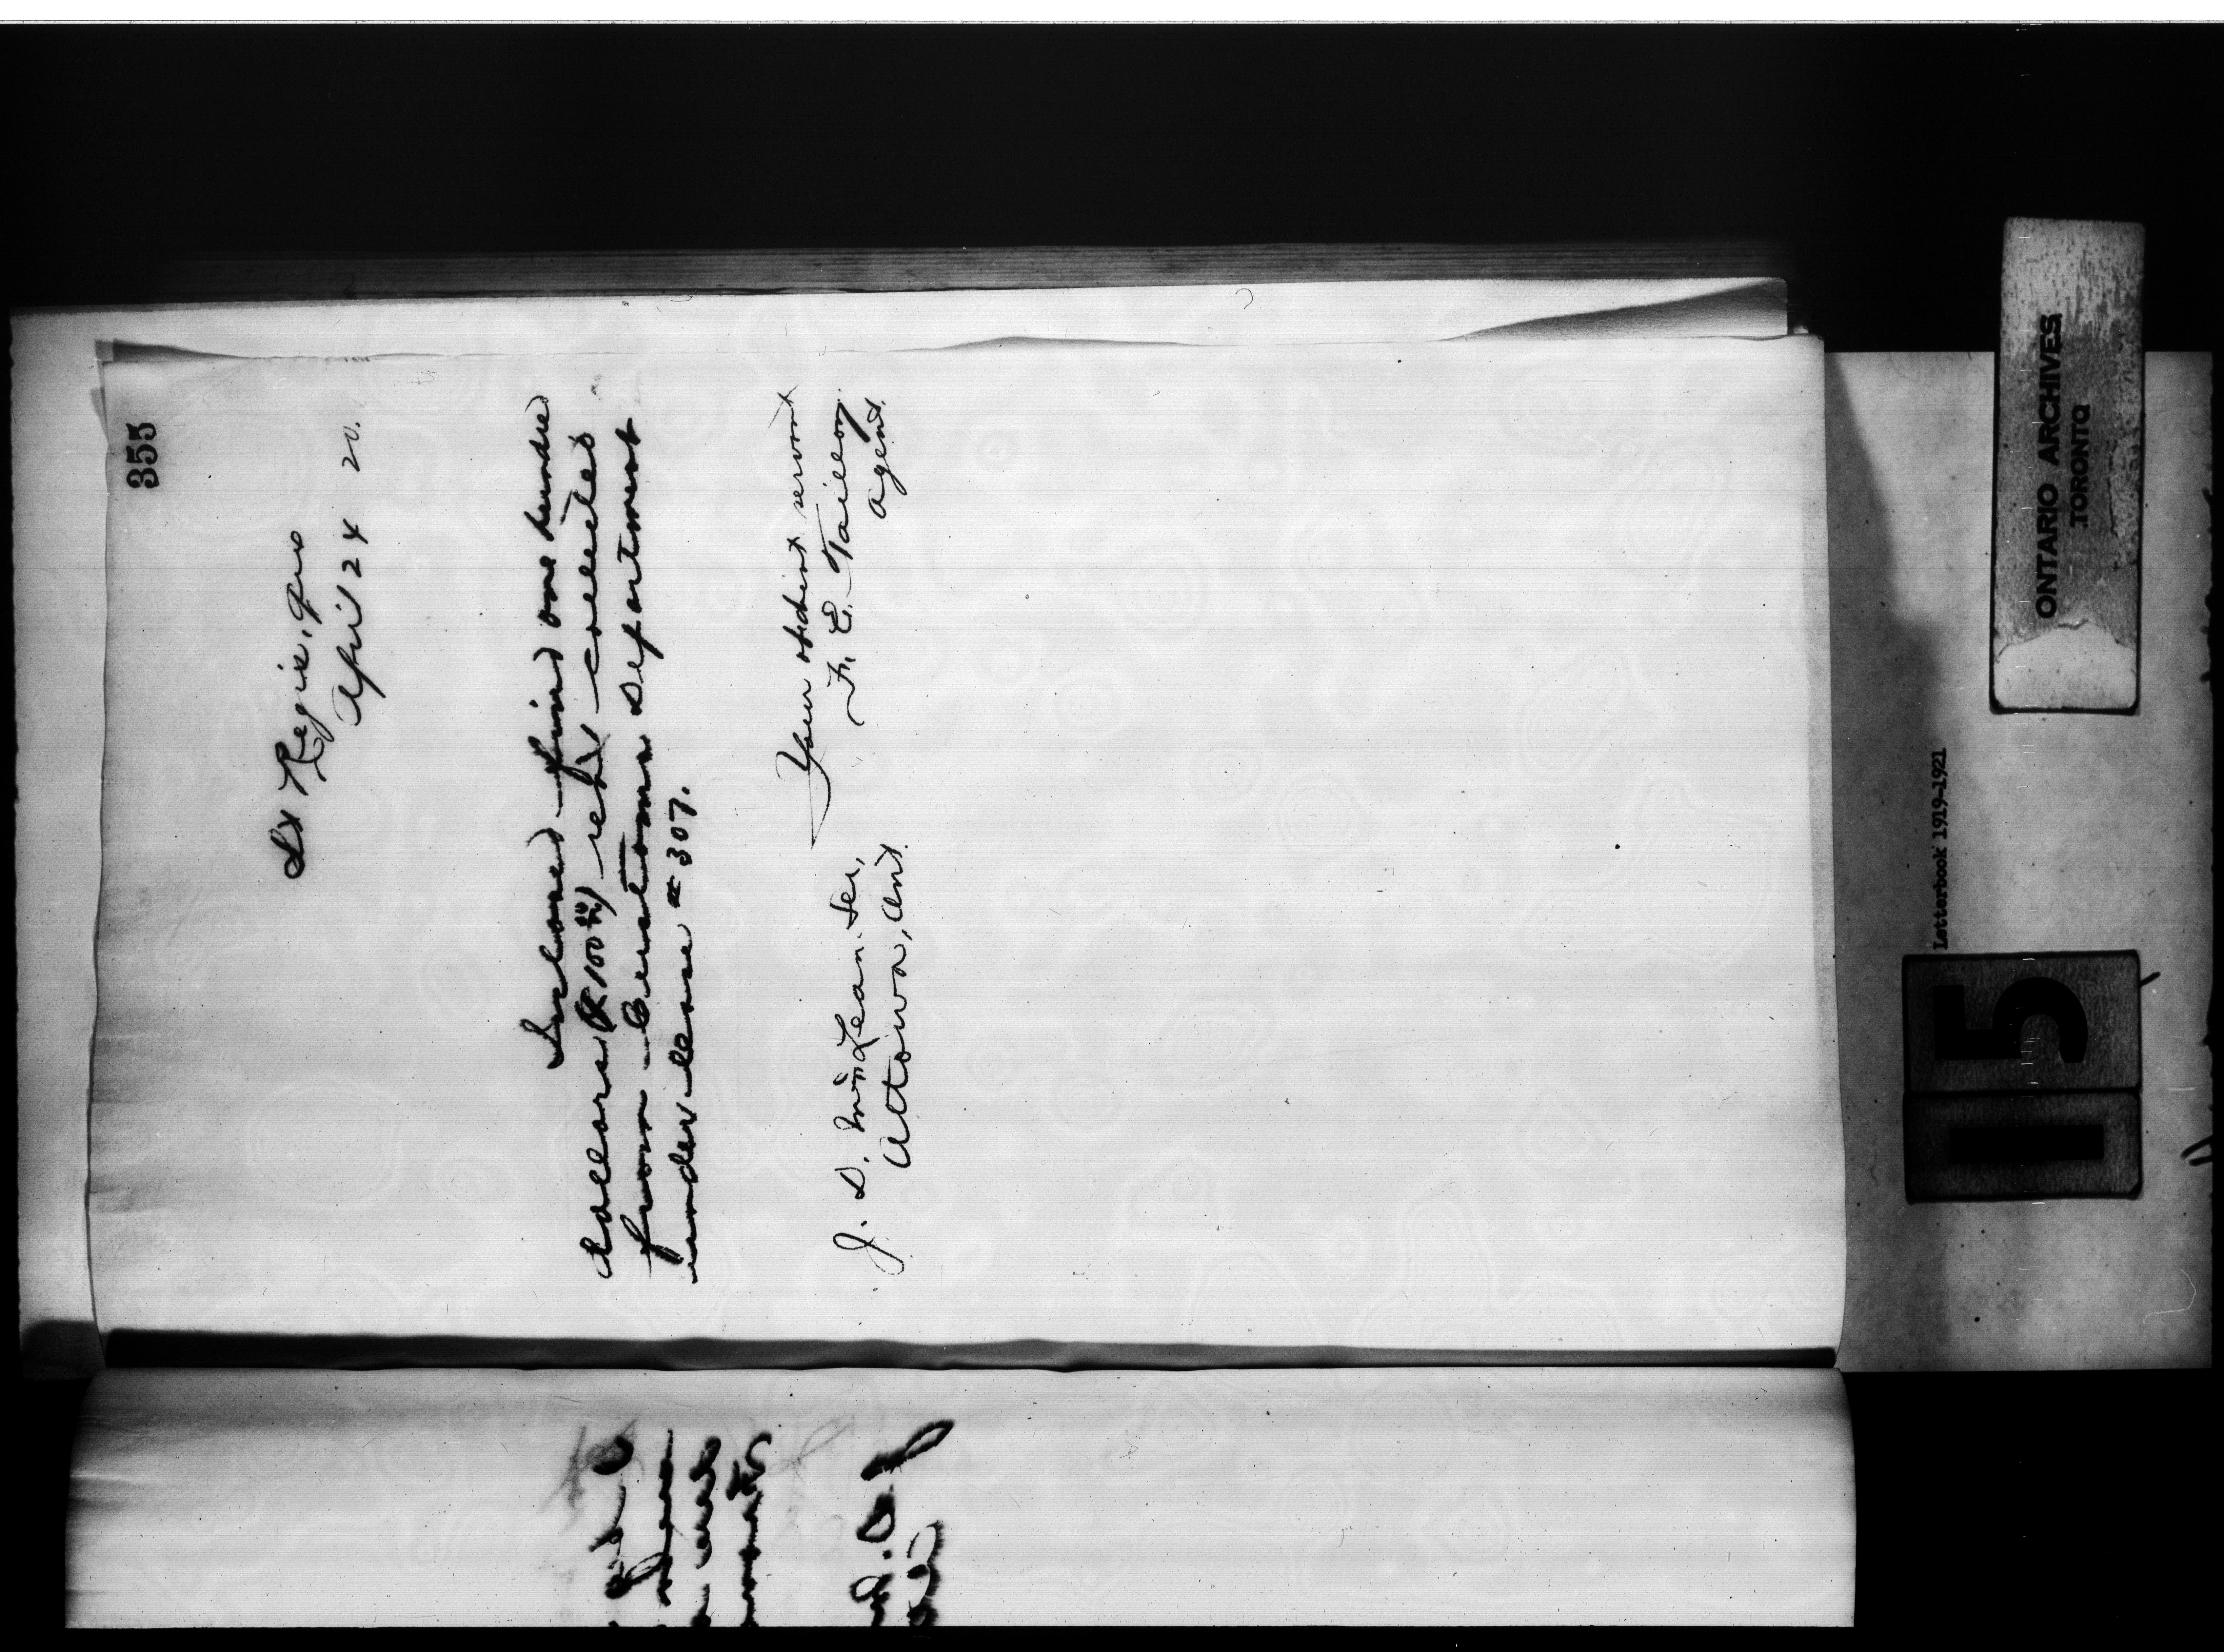 355
St Regis, Que
April 24 20.
Inclosed find one hundred
dollars ($100 00/xx) rent collected
from Customs Department
under lease # 307.
Your obedient servant
F. E. Taillon
agent.
J. D. McLean. Sec,
Ottawa, Ont.
Letterbook 1919-1921
15
ONTARIO ARCHIVES
TORONTO